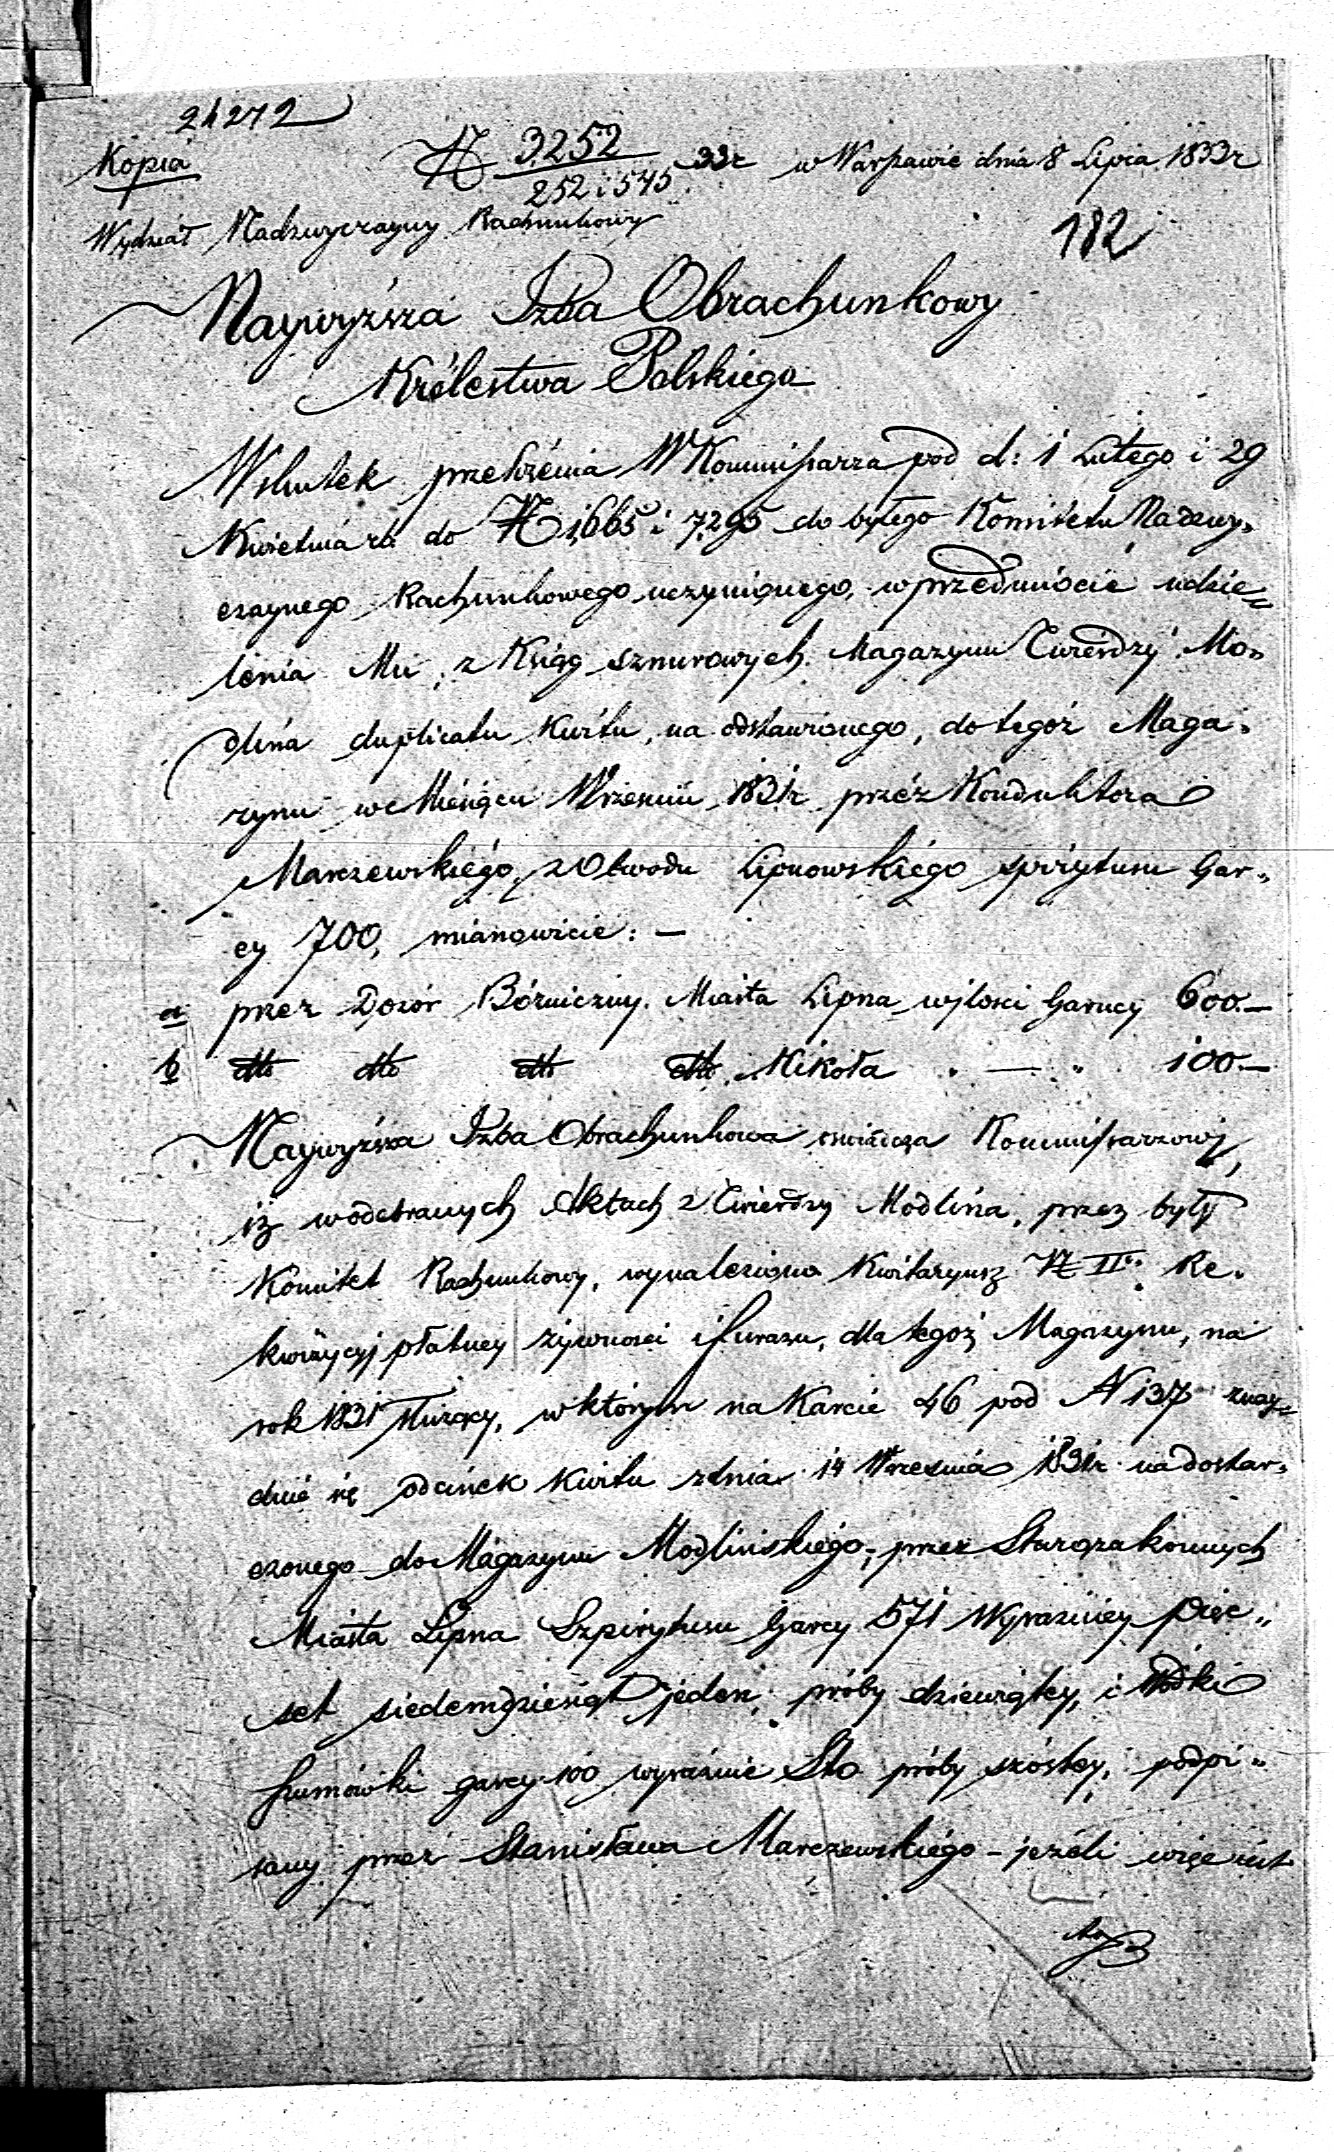 24272
Kopia
N 3252 / 252 i 545 33r w Warszawie dnia 8 Lipca 1833r
Wydział Nadzwyczayny Rachunkowy
182
Naywyższa Izba Obrachunkowy
Królestwa Polskiego
Wskutek W Kommissarza pod d: 1 Lutego i 29
Kwietnia rb do N 1,665 i 7,295 do byłego Komitetu Nadzwy„
czaynego Rachunkowego uczynionego, w przedmiocie udzie=
lenia Mu, z Ksiąg sznurowych Magazynu Twierdzy Mo„
dlina duplicatu Kwitu, na odstawionego, do tegoż Maga„
zynu w Miesiącu Wrzesniu 1831r przéz Konduktora
Marczewskiégo, z Obwodu Lipnowskiégo spirytusu Gar„
cy 700, mianowicie: —
a przez Dozór Bóżniczny Miasta Lipna w ilości Garncy 600.—
b dtto dtto dtto dtto Kikoła „ — „ 100.—
Naywyższa Izba Obrachunkowa oświadcza Kommissarzowi,
iż w odebranych Aktach z Twierdzy Modlina, przez były
Komitet Rachunkowy, wynaleziono Kwitaryusz N II Re„
kwizycyj płatney żywnosci i furazu, dla tegoż Magazynu, na
rok 1831 służący, w którym na Karcie 46 pod N 137 znay=
duie się odcinek Kwitu z dnia 14 Wrzesnia 1831r na dostar„
czonego do Magazynu Modlinskiégo, przez Starozakonnych
Miasta Lipna Szpirytusu Garcy 571 Wyrazniey Pięc„
set siedemdziesiąt jeden, próby dziewiątey, i Wódki
szumówki garcy 100 wyraźnie Sto próby szóstey, podpi„
sany przez Stanisława Marczewskiégo – jeźéli więc